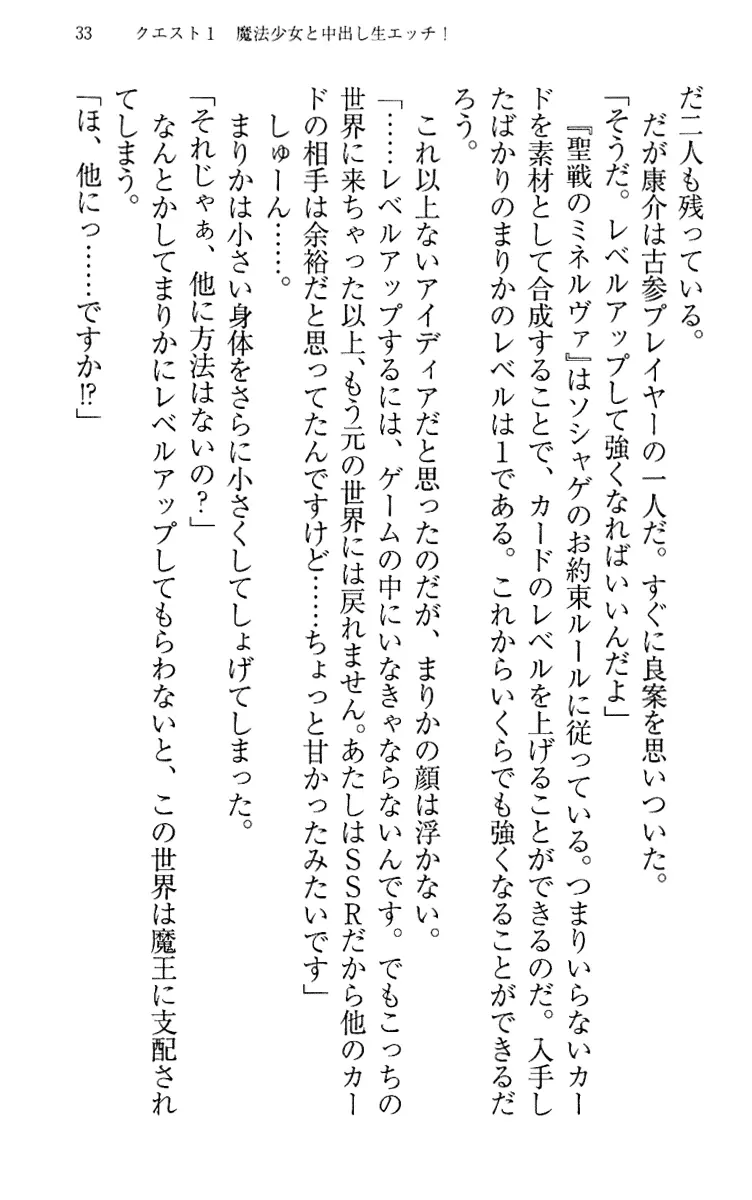 33　クエスト1　魔法少女と中出し生エッチ！
だ二人も残っている。
　だが康介は古参プレイヤーの一人だ。すぐに良案を思いついた。
「そうだ。レベルアップして強くなればいいんだよ」
　『聖戦のミネルヴァ』はソシャゲのお約束ルールに従っている。つまりいらないカー
ドを素材として合成することで、カードのレベルを上げることができるのだ。入手し
たばかりのまりかのレベルは１である。これからいくらでも強くなることができるだ
ろう。
　これ以上ないアイディアだと思ったのだが、まりかの顔は浮かない。
「……レベルアップするには、ゲームの中にいなきゃならないんです。でもこっちの
世界に来ちゃった以上、もう元の世界には戻れません。あたしはＳＳＲだから他のカー
ドの相手は余裕だと思ってたんですけど……ちょっと甘かったみたいです」
　しゅーん……。
　まりかは小さい身体をさらに小さくしてしょげてしまった。
「それじゃぁ、他に方法はないの？」
　なんとかしてまりかにレベルアップしてもらわないと、この世界は魔王に支配され
てしまう。
「ほ、他にっ……ですか!?」